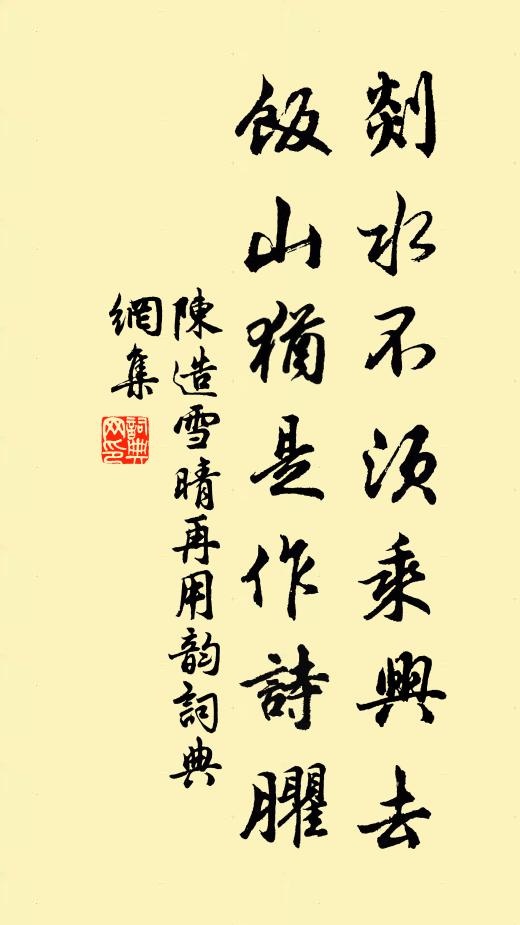 剡水不須乘興去
飯山猶是作詩臞
陳造雪晴再用韵詞典
網集
詞典
网印